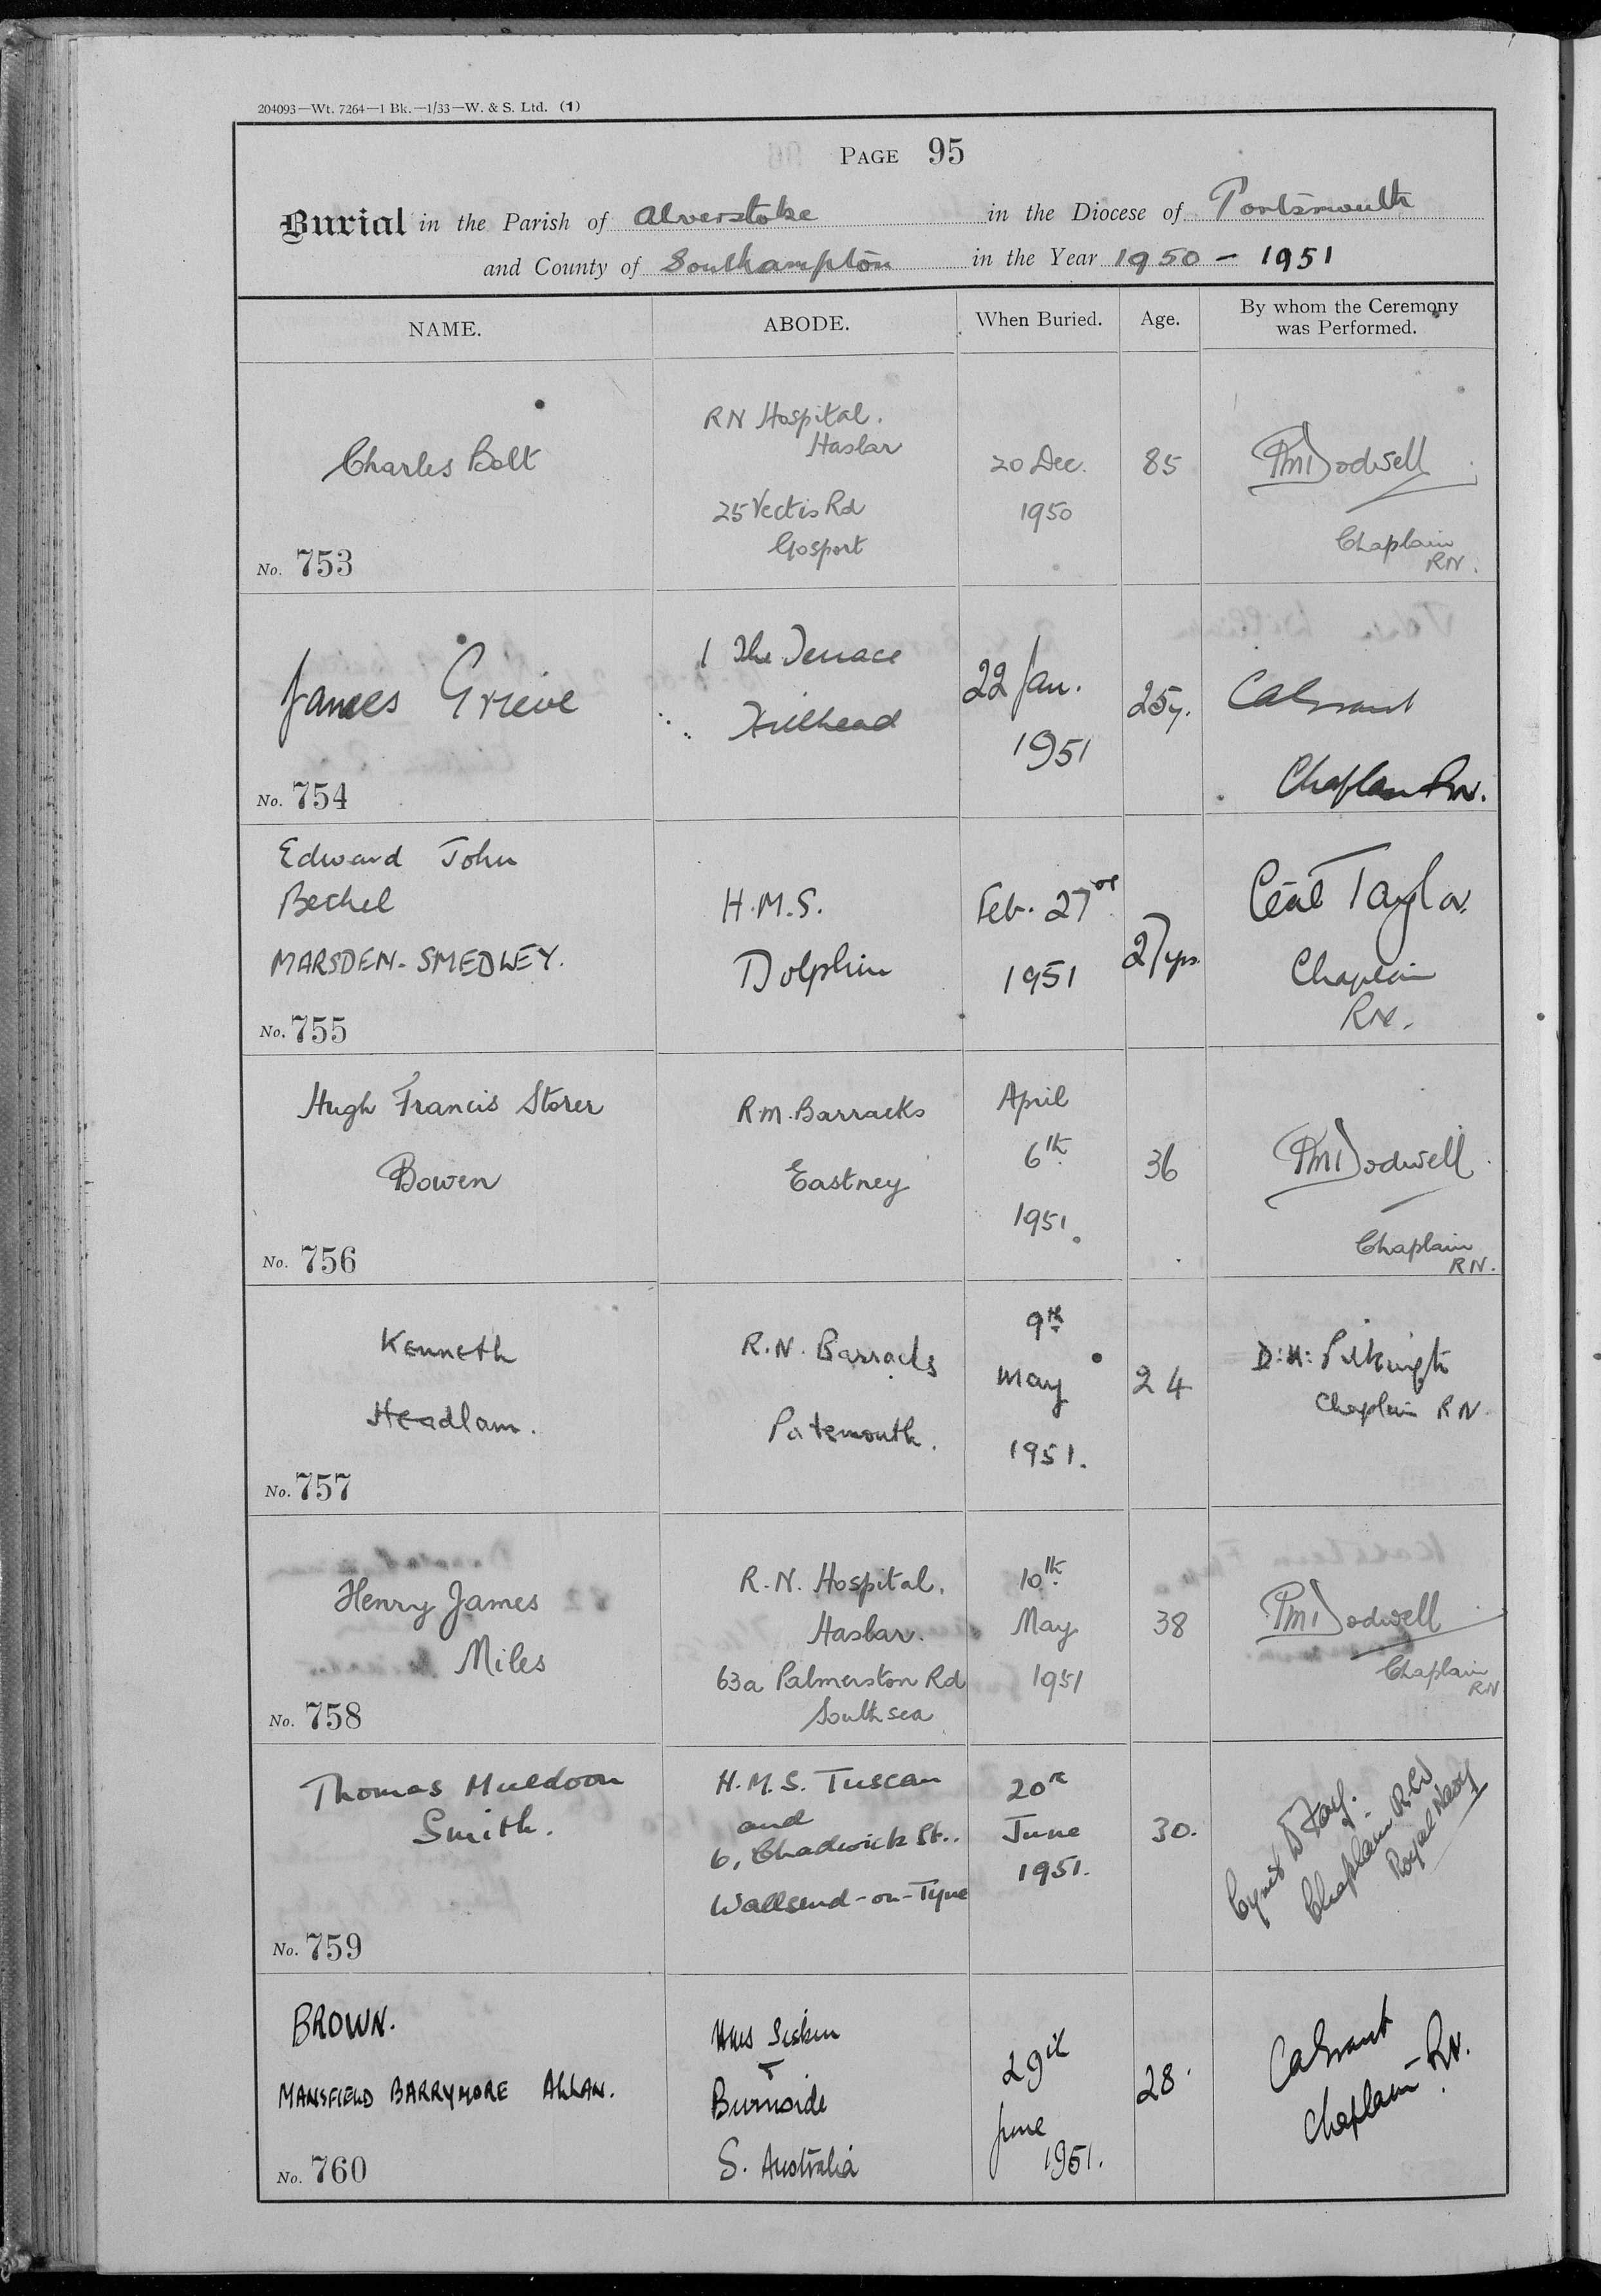 204093—Wt. 7264—1 Bk.—1/33—W. & S. Ltd. (1)
PAGE 95
Burial in the Parish of Alverstoke in the Diocese of Portsmouth
and County of Southampton in the Year 1950 - 1951
NAME. ABODE. When Buried. Age. By whom the Ceremony was Performed.
Charles Bolt
RN Hospital.
Haslar
25 Vectis Rd
Gosport
20 Dec.
1950
85
PM Dodwell
Chaplain
RN.
No. 753
James Grieve
1 The Terrace
Hillhead
22 Jan.
1951
25y.
Chaplain RN.
No. 754
Edward John
Bechel
MARSDEN-SMEDLEY.
H.M.S.
Dolphin
Feb. 27
1951
27yrs
Cecil Taylor.
Chaplain
RN.
No. 755
Hugh Francis Storer
Bowen
R.M. Barracks
Eastney
April
6th
1951
36
PM Dodwell
Chaplain
RN.
No. 756
Kenneth
Headlam.
R.N. Barracks
Portsmouth.
9th
May
1951.
24
Chaplain RN
No. 757
Henry James
Miles
R.N. Hospital.
Haslar.
63a Palmerston Rd
Southsea
10th
May
1951
38
PM Dodwell
Chaplain
RN
No. 758
Thomas Muldoon
Smith.
H.M.S. Tuscan
and
6, Chadwick St..
Wallsend-on-Tyne
20th
June
1951.
30.
Chaplain
Royal Navy
No. 759
BROWN.
MANSFIELD BARRYMORE ALLAN.
HMS Siskin
Burnside
S. Australia
29th
June
1951.
28.
Chaplain RN.
No. 760